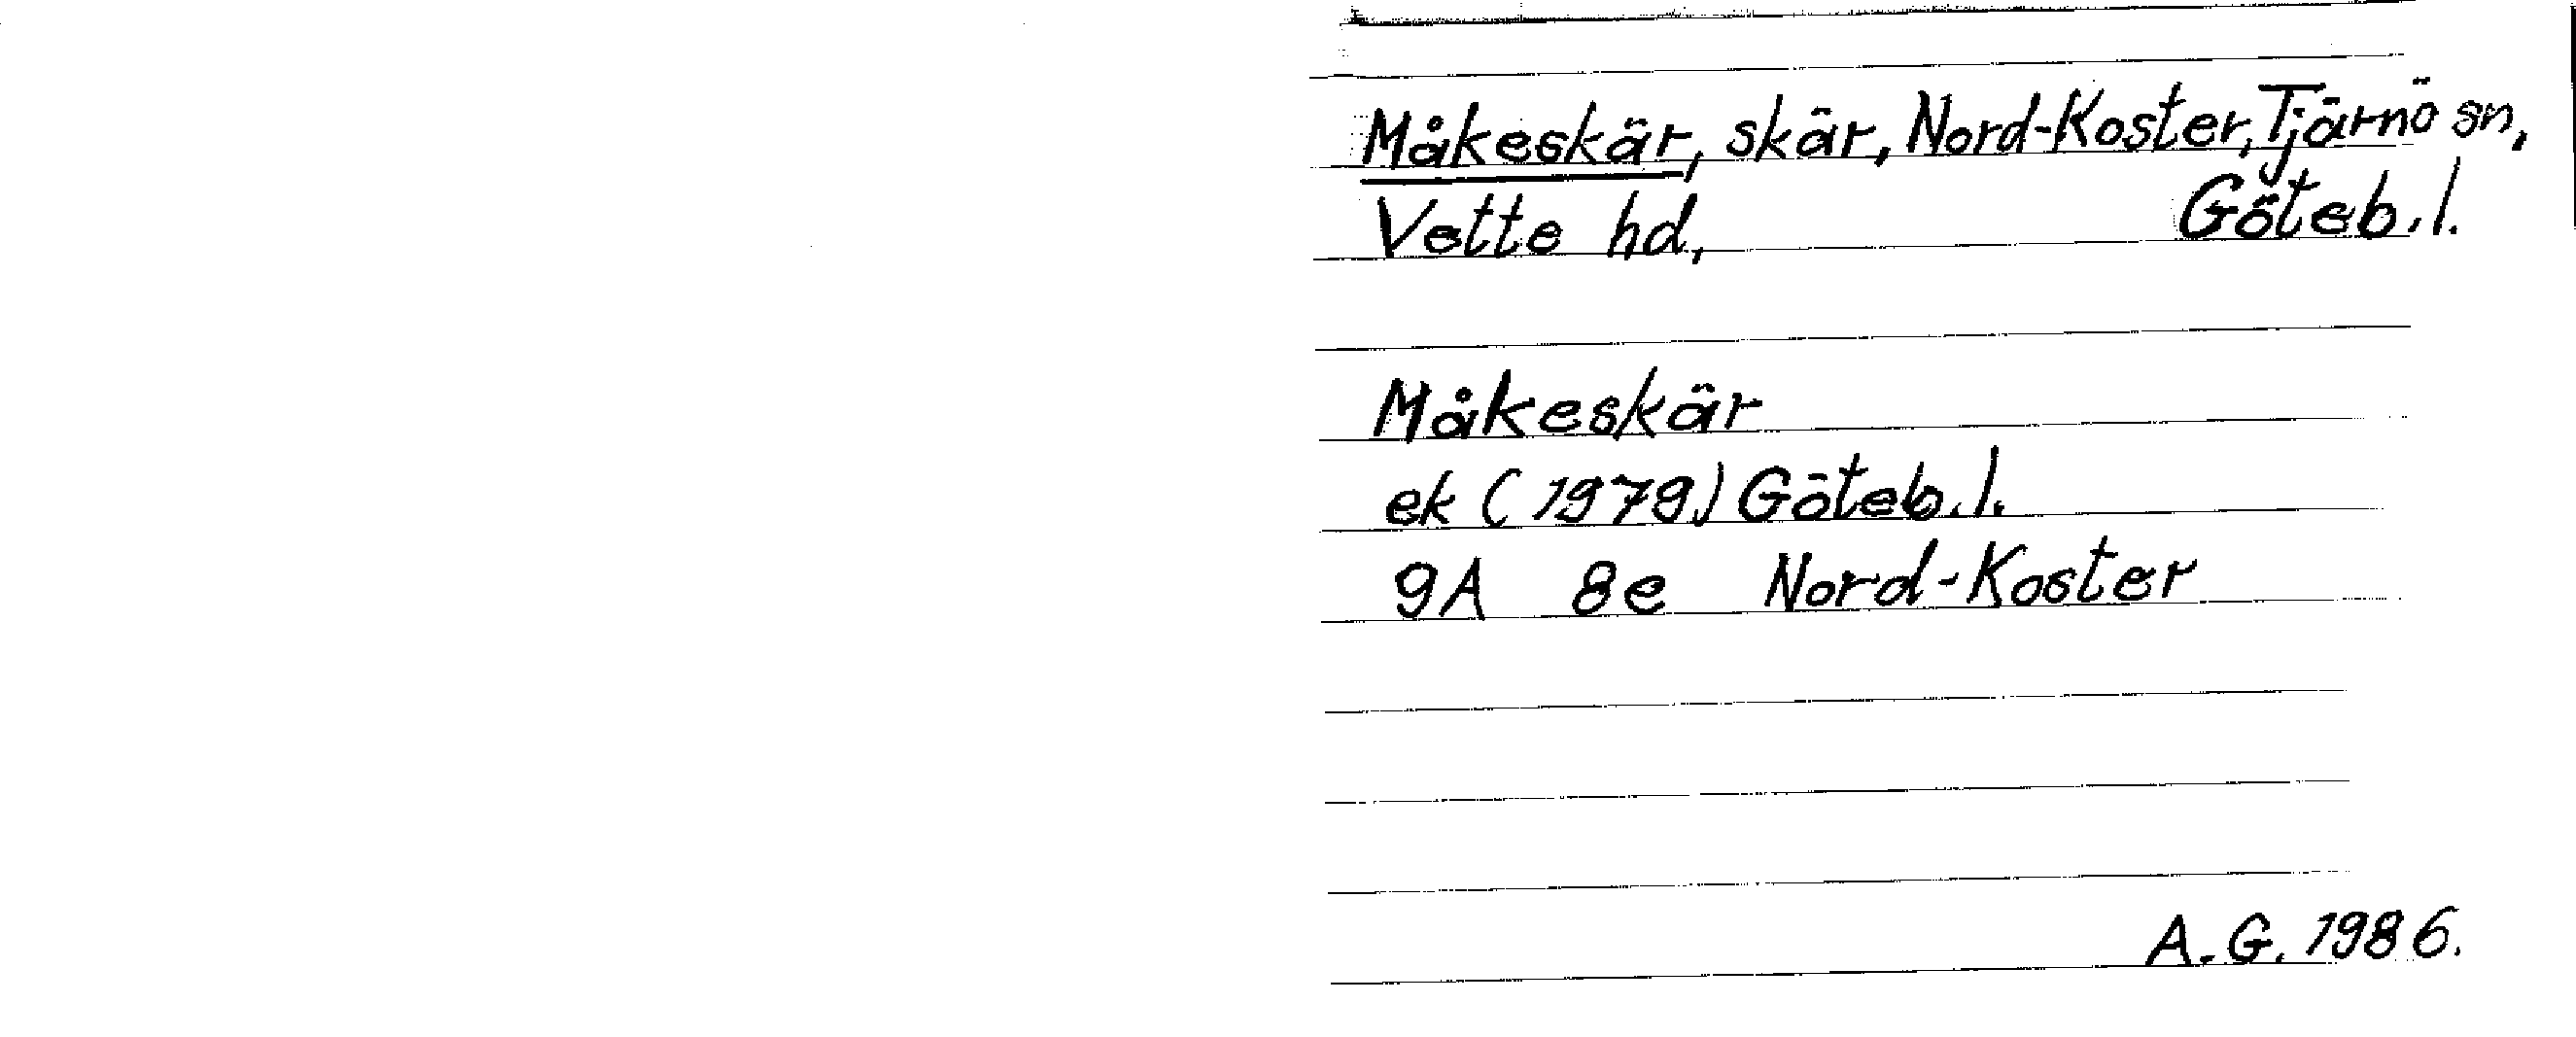 Måkeskär, skär, Nord-Koster, Tjärnö sn,
Vette hd, Göteb. l.
Måkeskär
ek (1979) Göteb. l.
9A 8e Nord-Koster
A.G. 1986.